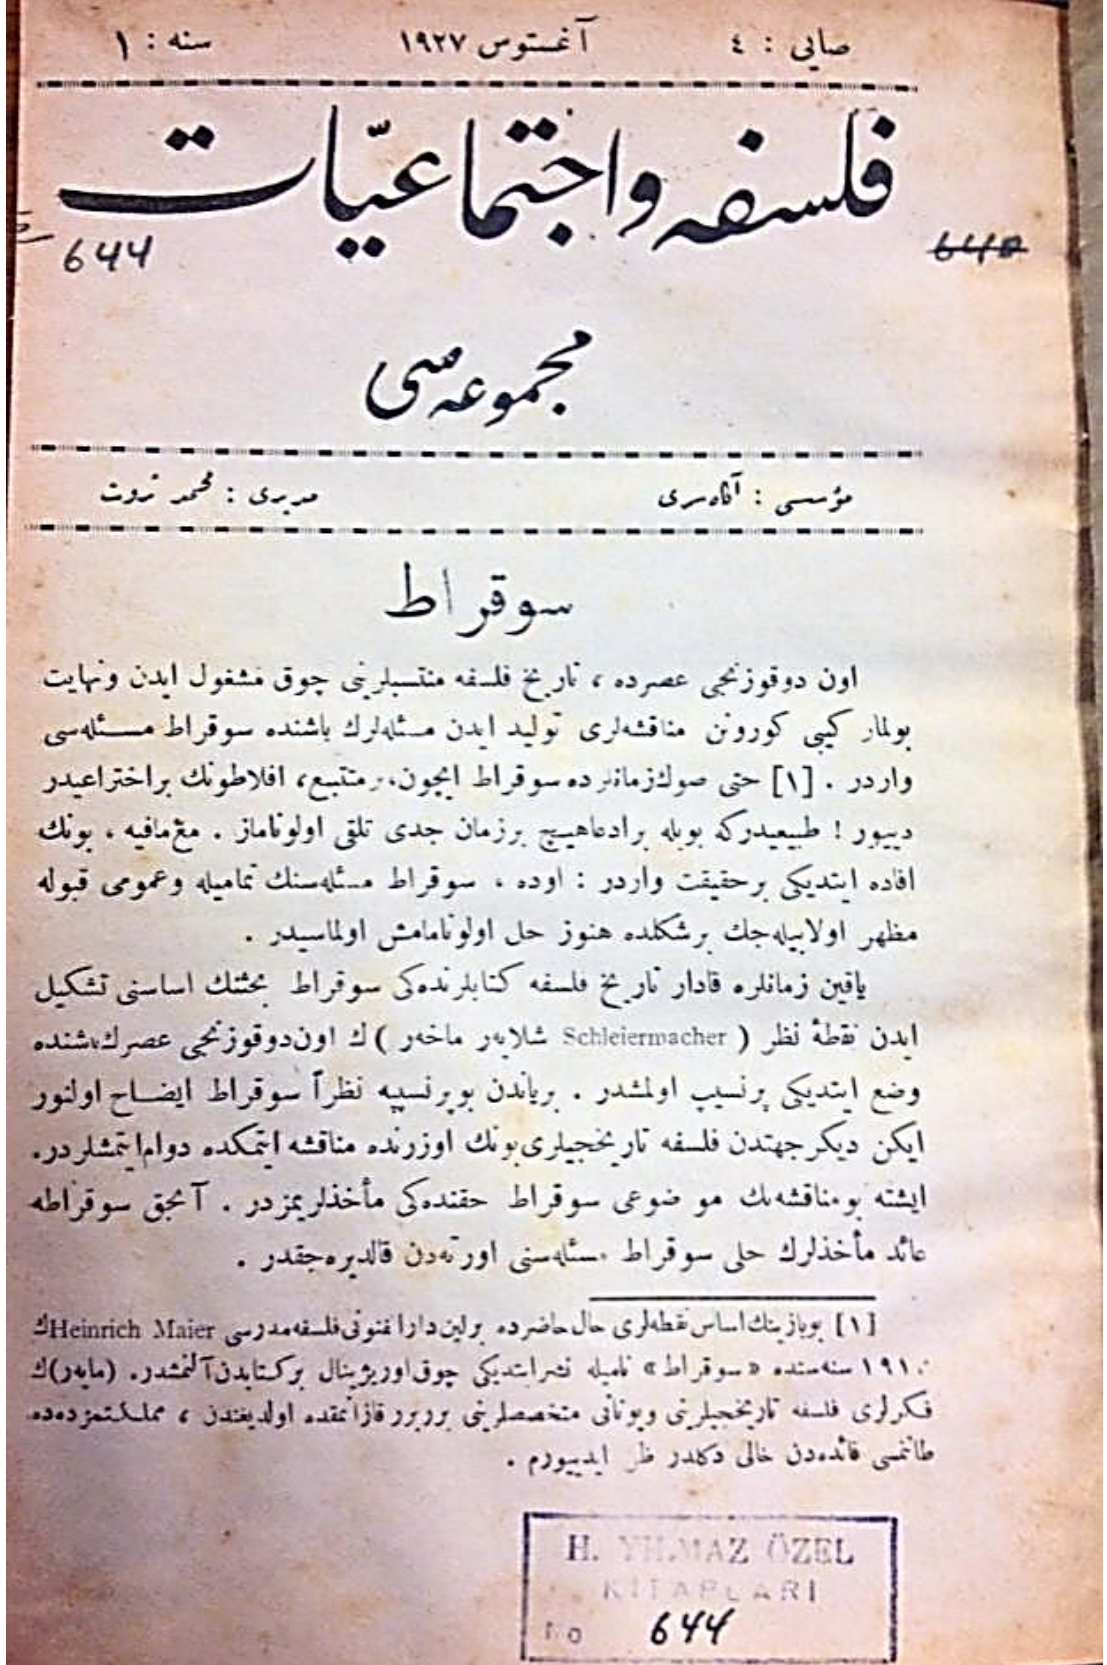 صايى : ٤
آغستوس ١٩٢٧
سنه : ١
فلسفه واجتماعيّات
644
640
مجموعه‌سى
مؤسسى : آكاه سرى
مديرى : محمد ثروت
سوقراط
اون دوقوزنجى عصرده ، تاريخ فلسفه منتسبلرينى چوق مشغول ايدن ونهايت
بولماز كيبى كورونن مناقشه‌لرى توليد ايدن مسئله‌لرك باشنده سوقراط مسئله‌سى
واردر . [١] حتى صوك زمانلرده سوقراط ايچون، بر متتبع، افلاطونك براختراعيدر
دييور ! طبيعيدركه بويله برادعا هيچ برزمان جدى تلقى اولوناماز . مع‌مافيه ، بونك
افاده ايتديكى برحقيقت واردر : اوده ، سوقراط مسئله‌سنك تماميله وعمومى قبوله
مظهر اولابيله‌جك برشكلده هنوز حل اولونامامش اولماسيدر .
ياقين زمانلره قادار تاريخ فلسفه كتابلرنده‌كى سوقراط بحثنك اساسنى تشكيل
ايدن نقطۀ نظر ( Schleiermacher شلايه‌ر ماخه‌ر ) ك اون‌دوقوزنجى عصرك باشنده
وضع ايتديكى پرنسيپ اولمشدر . برياندن بوپرنسيپه نظراً سوقراط ايضاح اولنور
ايكن ديكر جهتدن فلسفه تاريخجيلرى بونك اوزرنده مناقشه ايتمكده دوام ايتمشلردر.
ايشته بومناقشه‌نك موضوعى سوقراط حقنده‌كى مأخذلريمزدر . آنجق سوقراطه
عائد مأخذلرك حلى سوقراط مسئله‌سنى اورته‌دن قالديره‌جقدر .
[١] بويازينك اساس نقطه‌لرى حال حاضرده برلين دارالفنونى فلسفه مدرسى Heinrich Maier ك
١٩١٠ سنه‌سنده «سوقراط» ناميله نشر ايتديكى چوق اوريژينال بركتابدن آلنمشدر. (مايه‌ر)ك
فكرلرى فلسفه تاريخجيلرينى ويونانى متخصصلرينى بررر قازانمقده اولديغندن ، مملكتمزده‌ده
طانمسى فائده‌دن خالى دكلدر ظن ايدييورم .
H. YILMAZ ÖZEL
KİTAPLARI
No 644